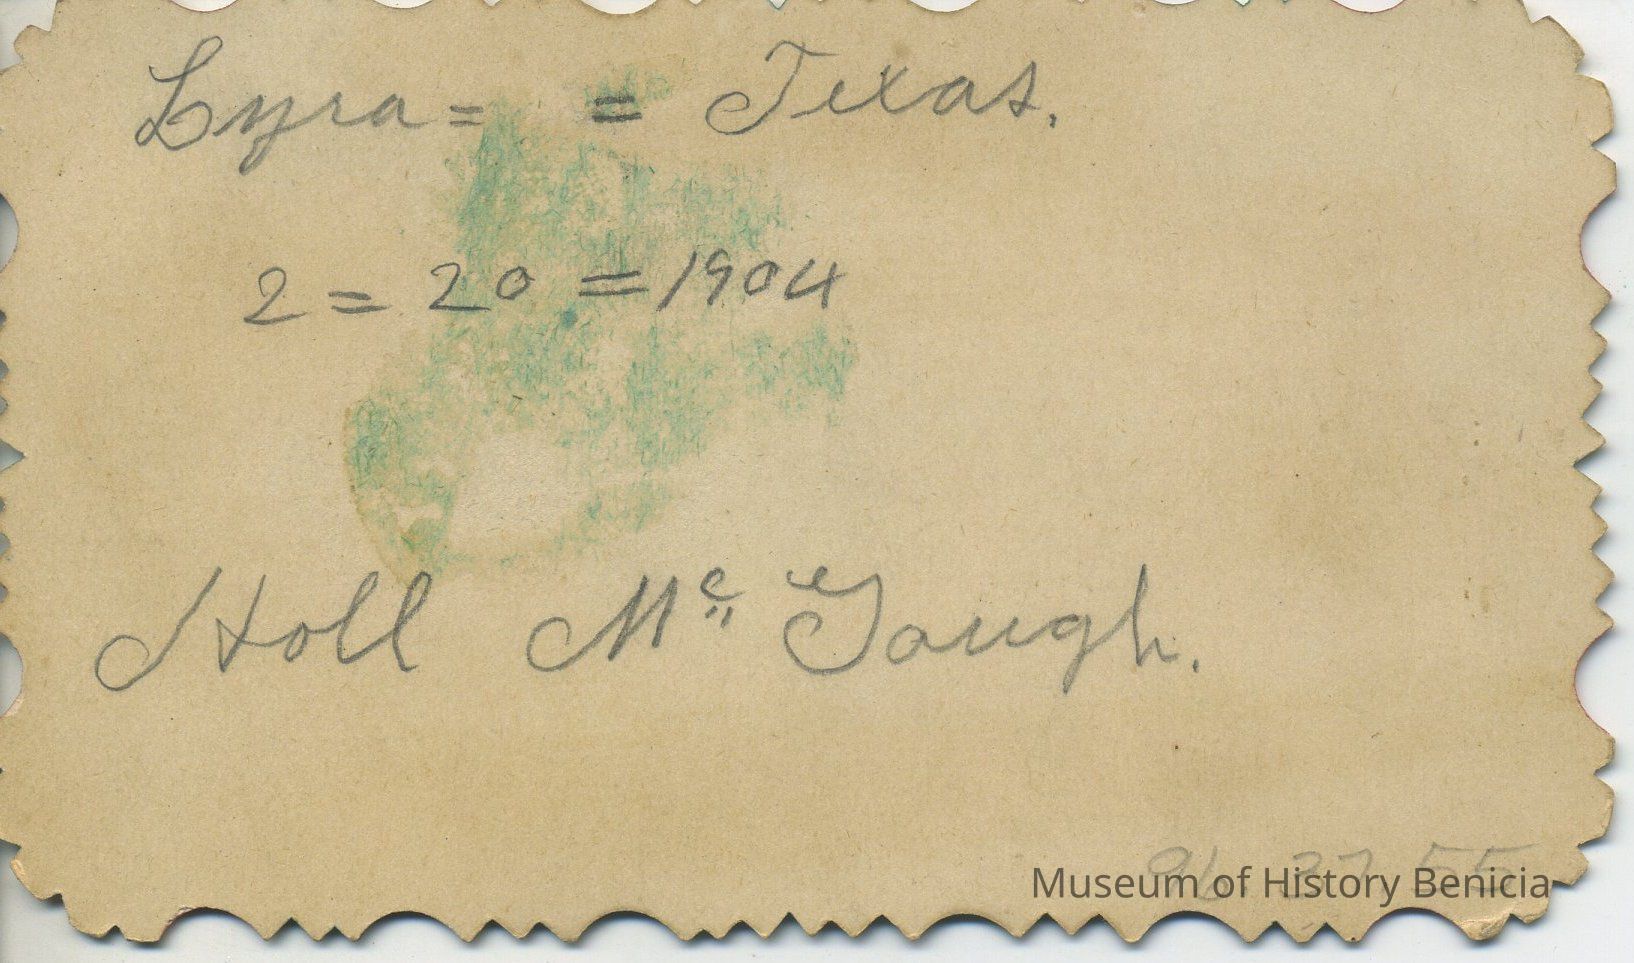 Lyra = = Texas.
2 = 20 = 1904
Holl Mc Gough.
Museum of History Benicia